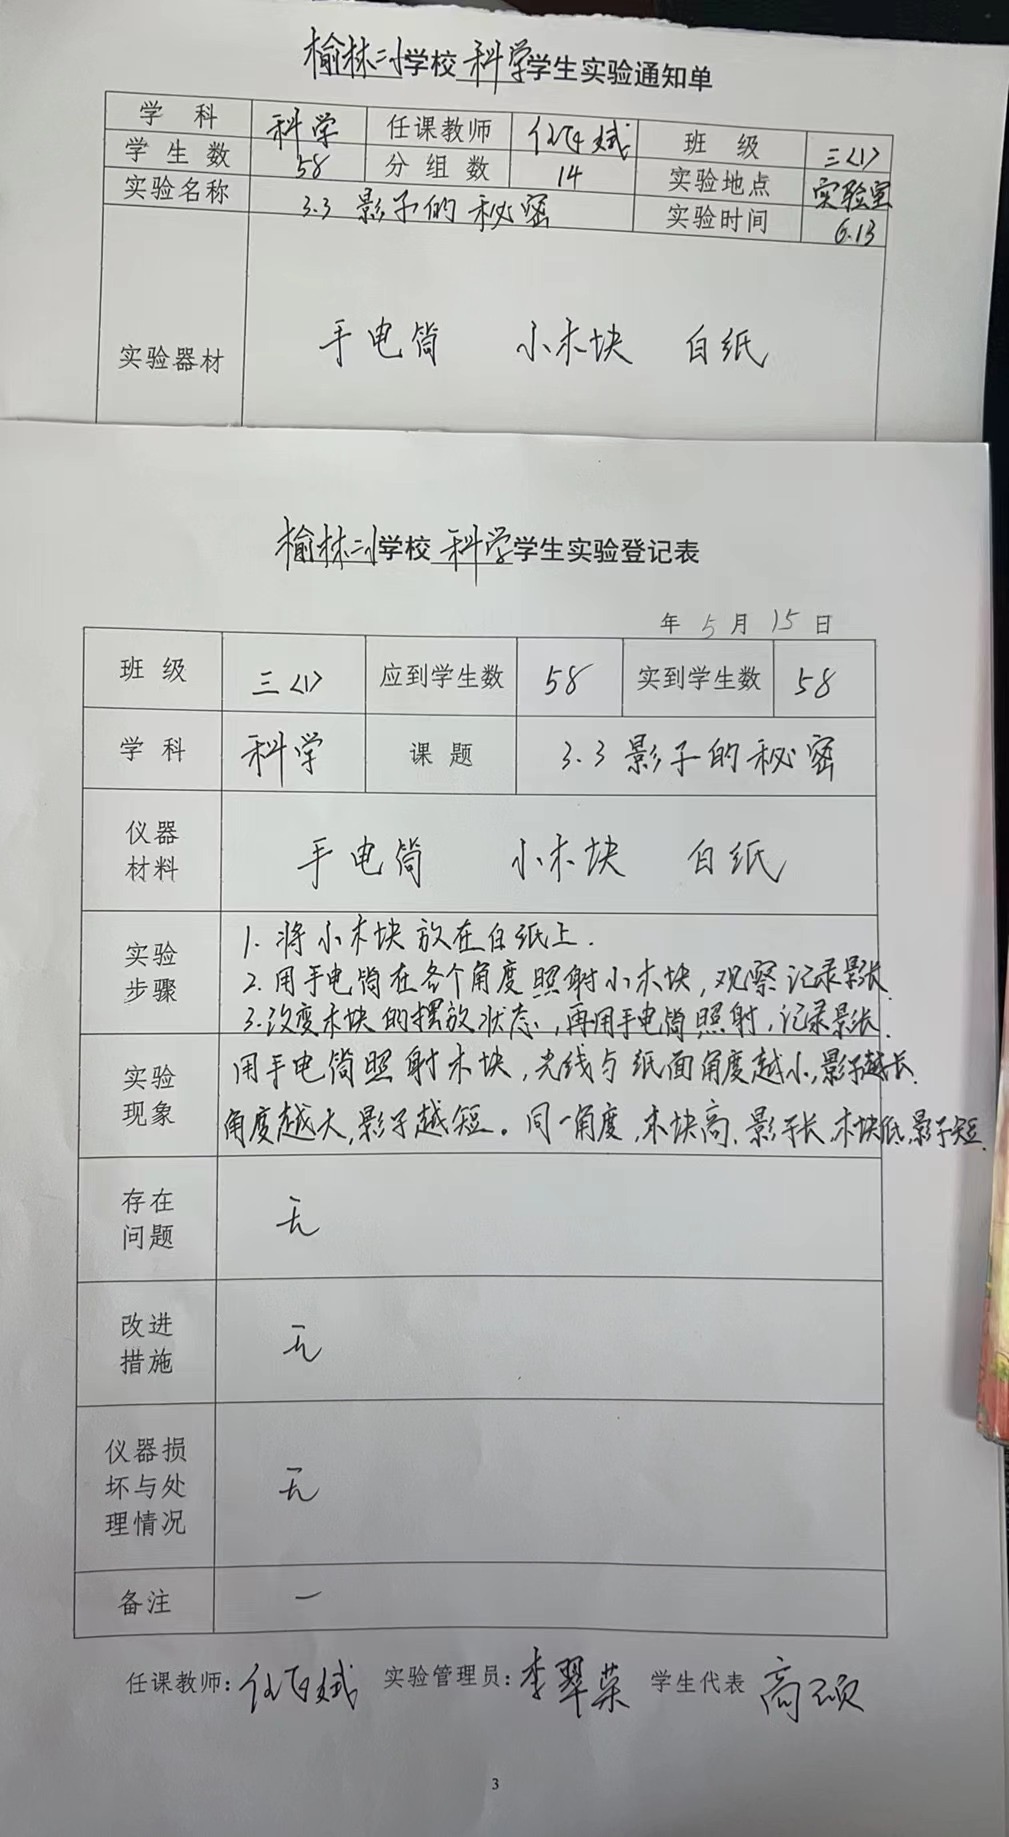 榆林二小学校 科学学生实验通知单
学科 科学 任课教师 班级 三<1>
学生数 58 分组数 14 实验地点 实验室
实验名称 3.3 影子的秘密 实验时间 6.13
实验器材 手电筒 小木块 白纸
榆林二小学校 科学学生实验登记表
年 5 月 15 日
班级 三<1> 应到学生数 58 实到学生数 58
学科 科学 课题 3.3 影子的秘密
仪器
材料 手电筒 小木块 白纸
实验
步骤
1. 将小木块放在白纸上.
2. 用手电筒在各个角度照射小木块,观察记录影长.
3. 改变木块的摆放状态,再用手电筒照射,记录影长.
实验
现象
用手电筒照射木块,光线与纸面角度越小,影子越长.
角度越大,影子越短。同一角度,木块高,影子长,木块低,影子短.
存在
问题 无
改进
措施 无
仪器损
坏与处
理情况 无
备注 一
任课教师: 实验管理员:李翠荣 学生代表 高硕
3